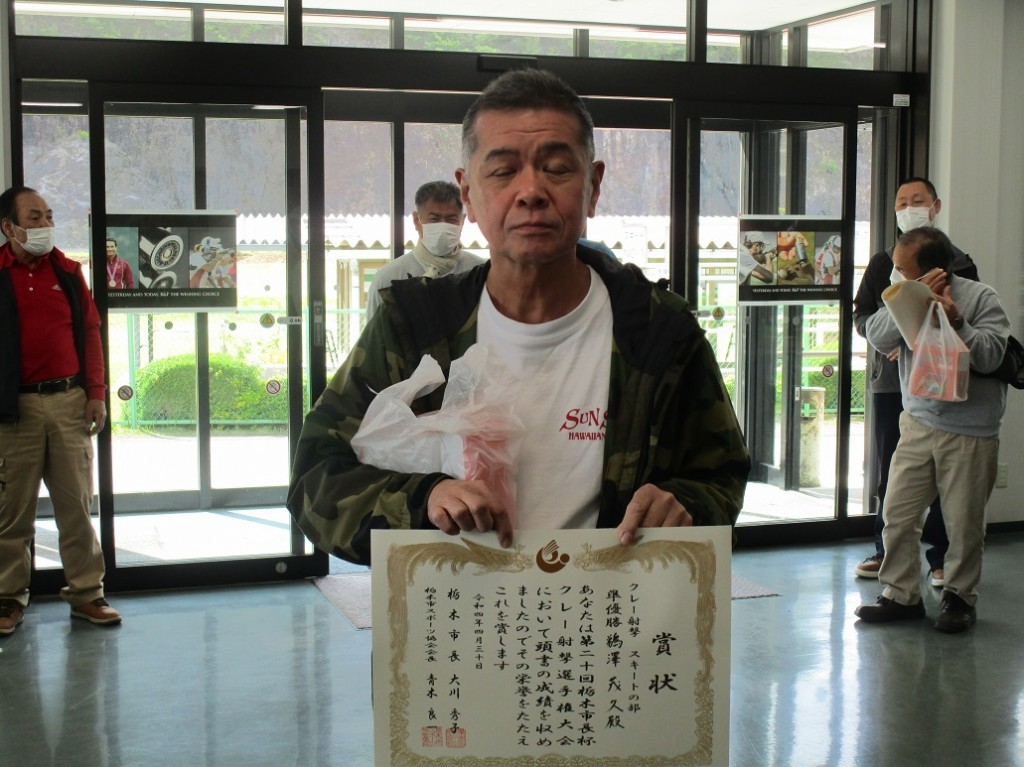 賞状
クレー射撃 スキートの部
準優勝 鵜澤 茂久殿
あなたは第二十回栃木市長杯
クレー射撃選手権大会
において頭書の成績を収め
ましたのでその栄誉をたたえ
これを賞します
令和四年四月三十日
栃木市長 大川 秀子
栃木市スポーツ協会会長 青木 良一
SUN S
HAWAIIAN
YESTERDAY AND TODAY, B&P THE WINNING CHOICE
YESTERDAY AND TODAY, B&P THE WINNING CHOICE